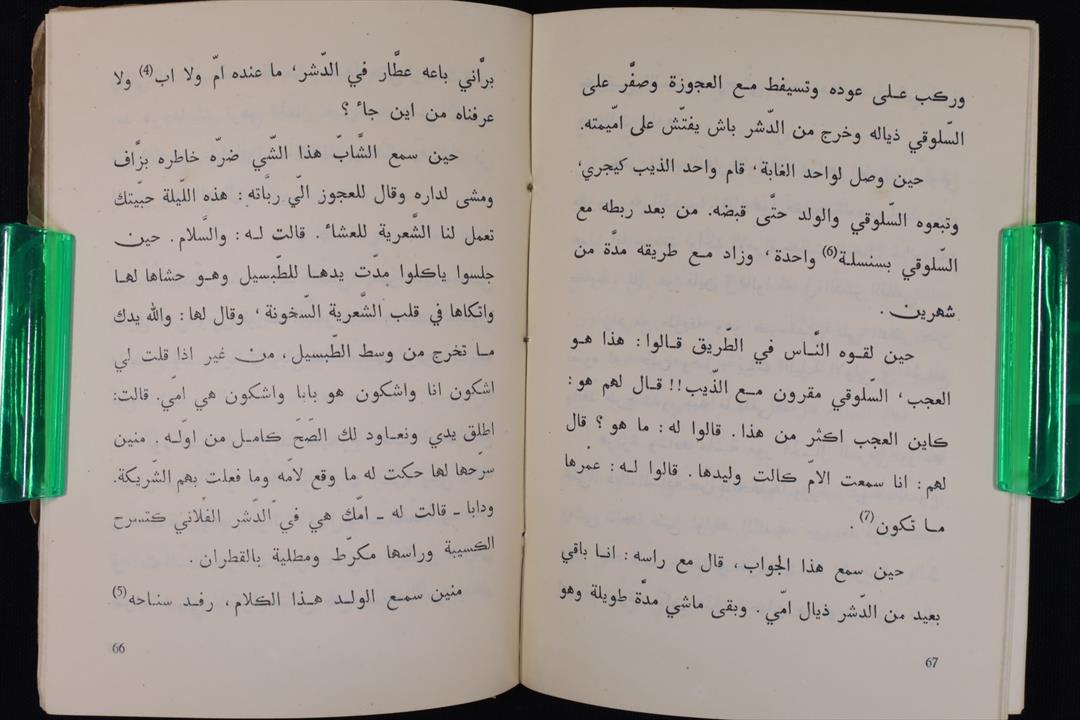 برَّاني باعه عطَّار في الدّشر، ما عنده امّ ولا اب(4) ولا
عرفناه من اين جاء ؟
حين سمع الشَّابّ هذا الشّي ضرّه خاطره بزَّاف
ومشى لداره وقال للعجوز الّي ربَّاته : هذه الليلة حبّيتك
تعمل لنا الشَّعرية للعشاء . قالت لـه : والسَّلام . حين
جلسوا ياكلوا مدّت يدهـا للطّبسيل وهـو حشاها لهـا
واتكاها في قلب الشَّعرية السّخونة ، وقال لها : والله يدك
مـا تخرج من وسط الطّبسيل ، من غير اذا قلت لي
اشكون انا واشكون هو بابا واشكون هي امّي . قالت :
اطلق يدي ونعـاود لك الصّحَ كامـل من اوّلـه . منين
سرّحها لها حكت له ما وقع لامّه وما فعلت بهم الشريكة .
ودابا ـ قالت له ـ امّك هي في الدّشر الفلاني كتسرح
الكسيبة وراسها مكرّط ومطلية بالقطران .
منين سمـع الولـد هـذا الكلام ، رفـد سناحه(5)
66
وركب عـلـى عوده وتسيفط مـع العجوزة وصفَّر عـلى
السّلوقي ذياله وخرج من الدّشر باش يفتّش على امّيمته .
حين وصل لواحد الغابة ، قام واحد الذيب كيجري ،
وتبعوه السّلوقي والولد حتَّى قبضه . من بعد ربطه مع
السّلوقي بسنسلة(6) واحدة ، وزاد مـع طريقه مدّة من
شهرين .
حين لقوه النَّاس في الطّريق قـالوا : هذا هـو
العجب ، السّلوقي مقرون مـع الذّيب !! قـال لهم هو :
كاين العجب اكثر من هذا . قالوا له : ما هو ؟ قال
لهم : انا سمعت الامّ كالت وليدها . قالوا لـه : عمّرها
مـا تكون(7) .
حين سمع هذا الجواب ، قال مع راسه : انـا باقي
بعيد من الدّشر ذيال امّي . وبقى ماشي مدّة طويلة وهو
67